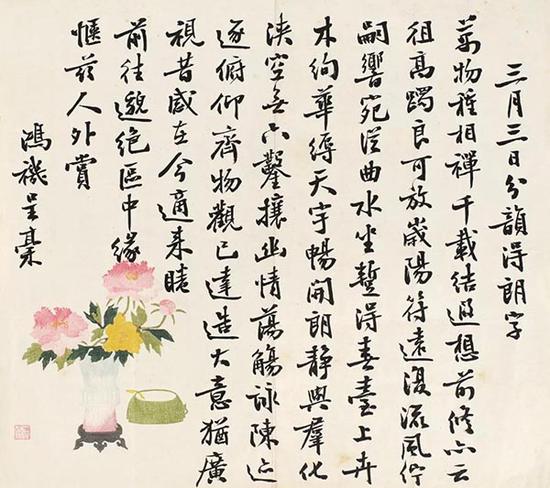 三月三日分韻得朗字
萬物種相禪千載結遐想前修亦云
徂高躅良可放歲陽符遠復流風佇
嗣響宛從曲水坐暫得春臺上卉
木絢華縟天宇暢開朗靜與羣化
浹空無六鑿攘幽情蕩觴詠陳迹
遂俯仰齊物觀已達造大意猶廣
視昔感在今適來
前往邈絕區中緣
愜茲人外賞
鴻禨呈稾